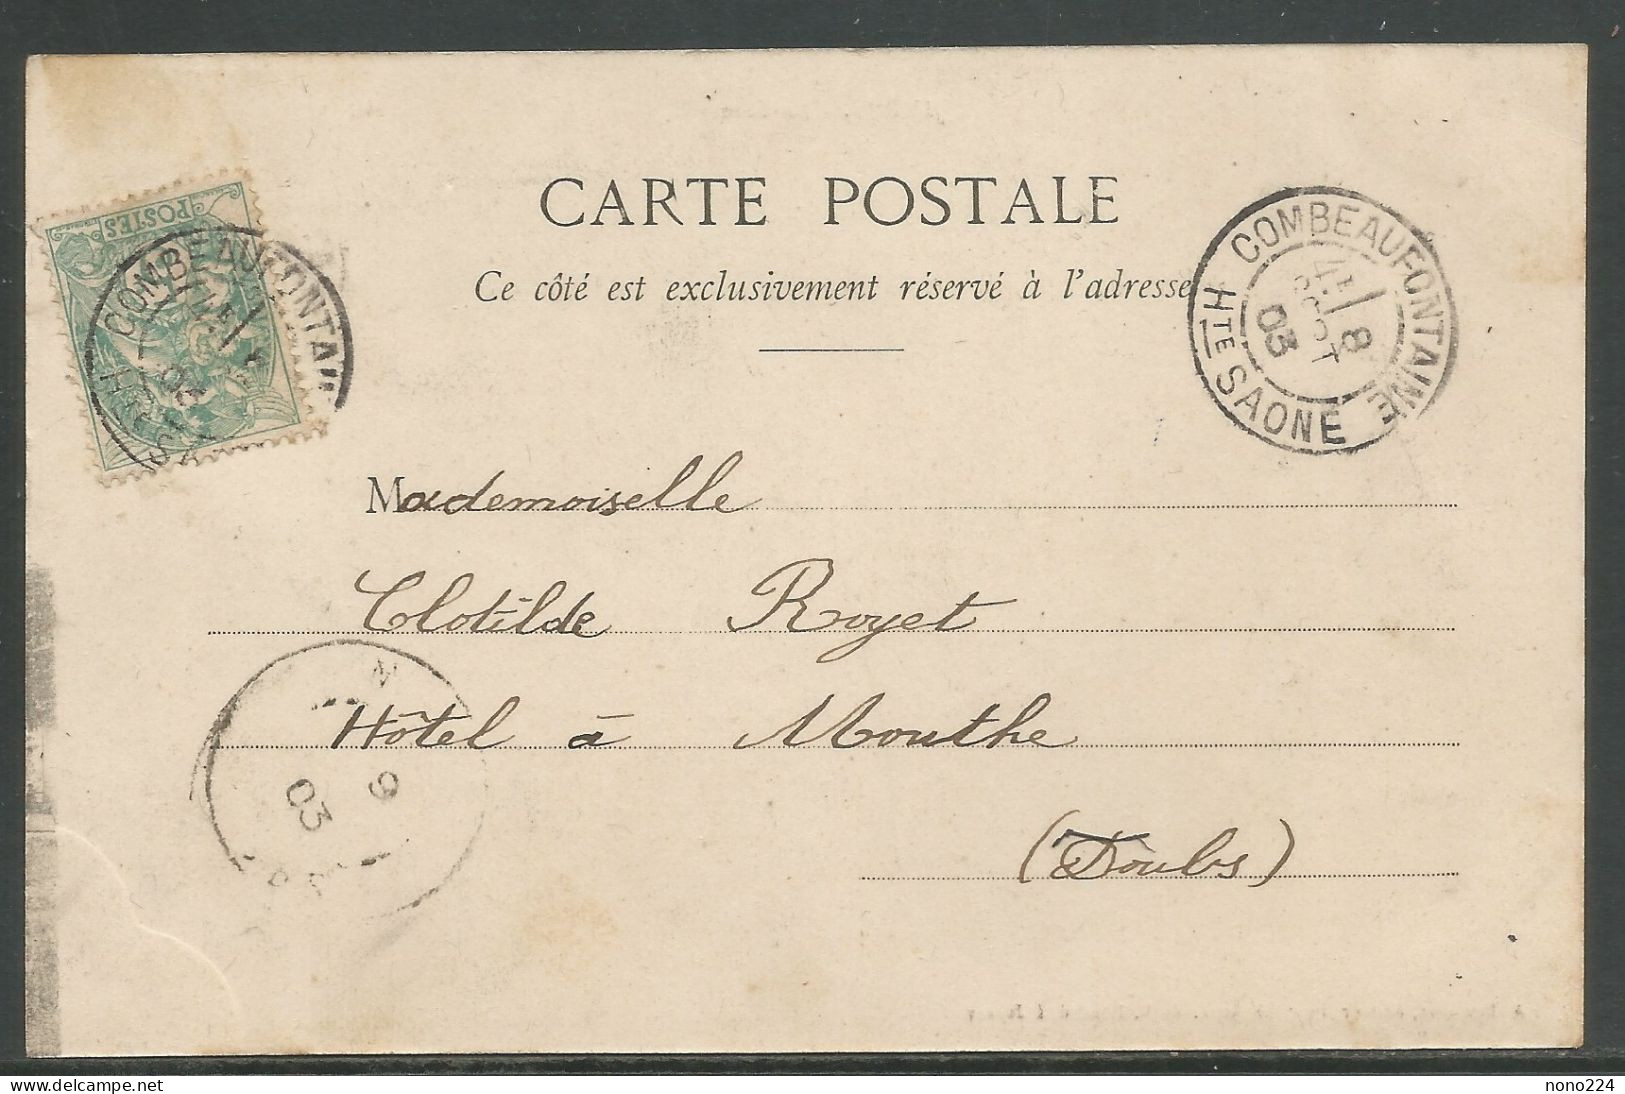 CARTE POSTALE
Ce côté est exclusivement réservé à l'adresse
POSTES
COMBEAUFONTAINE
8
03
HTE SAONE
Mademoiselle
Clotilde Royet
Hôtel à Mouthe
(Doubs)
9
03
nono224